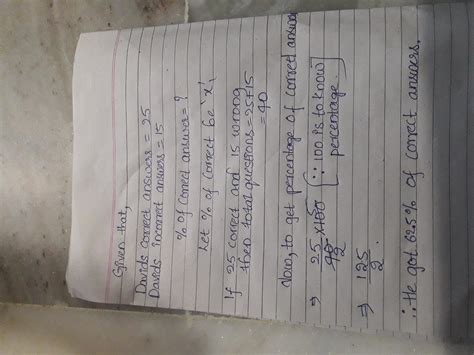 Given that,
Davids correct answers = 25
Davids incorrect answers = 15
% of correct answer = ?
Let % of correct be 'x'.
If 25 correct and 15 wrong
then total questions = 25+15
= 40
Now, to get percentage of correct answers
⇒ 25/40 × 100 [∵ 100 is to know percentage]
2
⇒ 125/2
∴ He got 62.5% of correct answers.